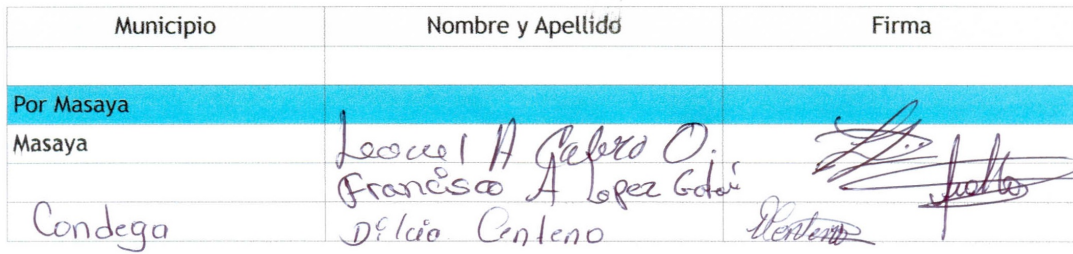 Municipio Nombre y Apellido Firma
Por Masaya
Masaya Leonel A Calero O.
Francisco A Lopez
Condega Dilcia Centeno DCenteno